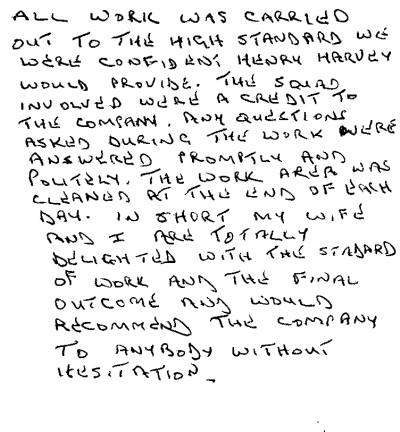 ALL WORK WAS CARRIED
OUT TO THE HIGH STANDARD WE
WERE CONFIDENT HENRY HARVEY
WOULD PROVIDE. THE SQUAD
INVOLVED WERE A CREDIT TO
THE COMPANY. ANY QUESTIONS
ASKED DURING THE WORK WERE
ANSWERED PROMPTLY AND
POLITELY. THE WORK AREA WAS
CLEANED AT THE END OF EACH
DAY. IN SHORT MY WIFE
AND I ARE TOTALLY
DELIGHTED WITH THE STANDARD
OF WORK AND THE FINAL
OUTCOME AND WOULD
RECOMMEND THE COMPANY
TO ANYBODY WITHOUT
HESITATION.